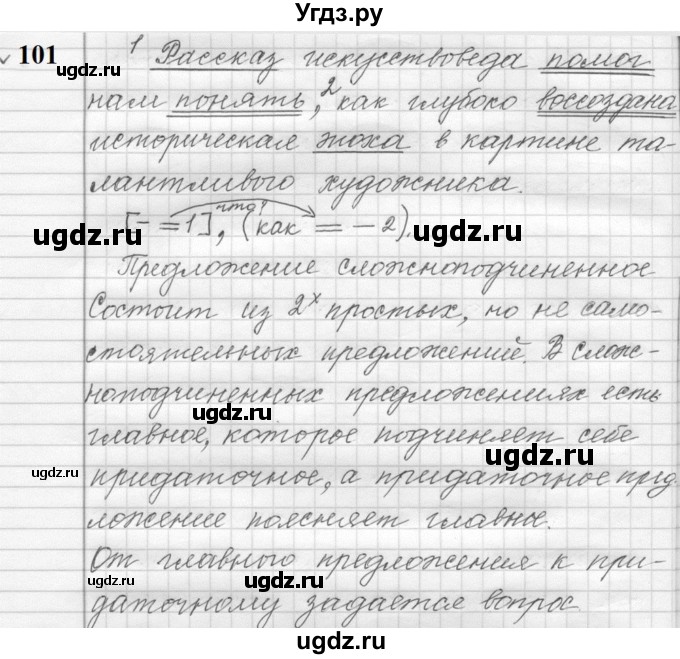 Угдз.ру
101 ¹ Рассказ искусствоведа помог
ugdz.ru
нам понять,² как глубоко воссоздана
ugdz.ru
историческая эпоха в картине та-
лантливого художника.
ugdz.ru
что?
[– = 1], (как = – 2).
ugdz.ru
ugdz.ru
Предложение сложноподчиненное
Состоит из 2х простых, но не само-
стоятельных предложений. В слож-
ноподчиненных предложениях есть
ugdz.ru
главное, которое подчиняет себе
ugdz.ru
ugdz.ru
придаточное, а придаточное пред-
ложение поясняет главное.
От главного предложения к при-
ugdz.ru
ugdz.ru
даточному задается вопрос
ugdz.ru